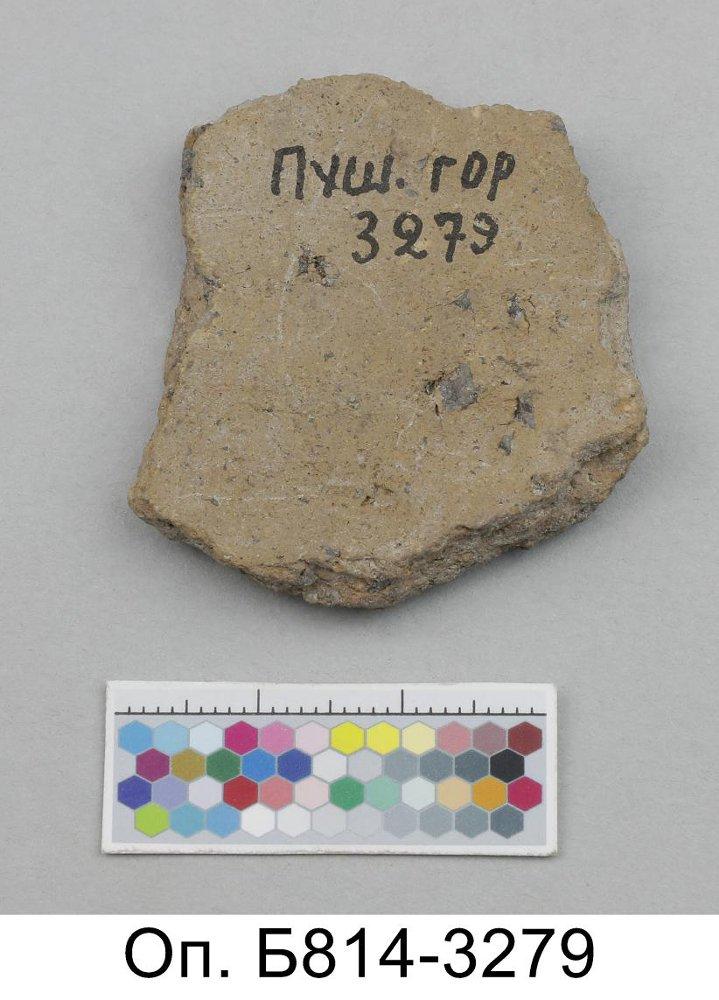 Пуш. гор
3279
Оп. Б814-3279